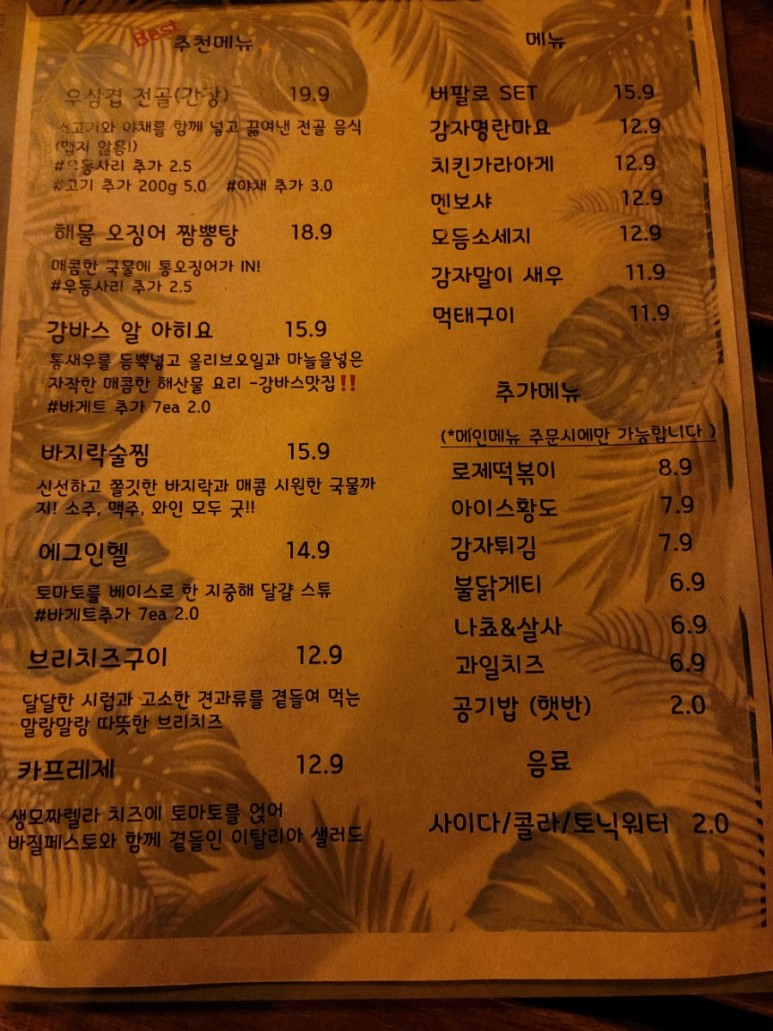 Best 추천메뉴
우삼겹 전골(간장) 19.9
소고기와 야채를 함께 넣고 끓여낸 전골 음식
(맵지 않음!)
#우동사리 추가 2.5
#고기 추가 200g 5.0 #야채 추가 3.0
해물 오징어 짬뽕탕 18.9
매콤한 국물에 통오징어가 IN!
#우동사리 추가 2.5
감바스 알 아히요 15.9
통새우를 듬뿍넣고 올리브오일과 마늘을넣은
자작한 매콤한 해산물 요리 -감바스맛집‼️
#바게트 추가 7ea 2.0
바지락술찜 15.9
신선하고 쫄깃한 바지락과 매콤 시원한 국물까
지! 소주, 맥주, 와인 모두 굿!!
에그인헬 14.9
토마토를 베이스로 한 지중해 달걀 스튜
#바게트추가 7ea 2.0
브리치즈구이 12.9
달달한 시럽과 고소한 견과류를 곁들여 먹는
말랑말랑 따뜻한 브리치즈
카프레제 12.9
생모짜렐라 치즈에 토마토를 얹어
바질페스토와 함께 곁들인 이탈리아 샐러드
메뉴
버팔로 SET 15.9
감자명란마요 12.9
치킨가라아게 12.9
멘보샤 12.9
모듬소세지 12.9
감자말이 새우 11.9
먹태구이 11.9
추가메뉴
(*메인메뉴 주문시에만 가능합니다 )
로제떡볶이 8.9
아이스황도 7.9
감자튀김 7.9
불닭게티 6.9
나쵸&살사 6.9
과일치즈 6.9
공기밥 (햇반) 2.0
음료
사이다/콜라/토닉워터 2.0